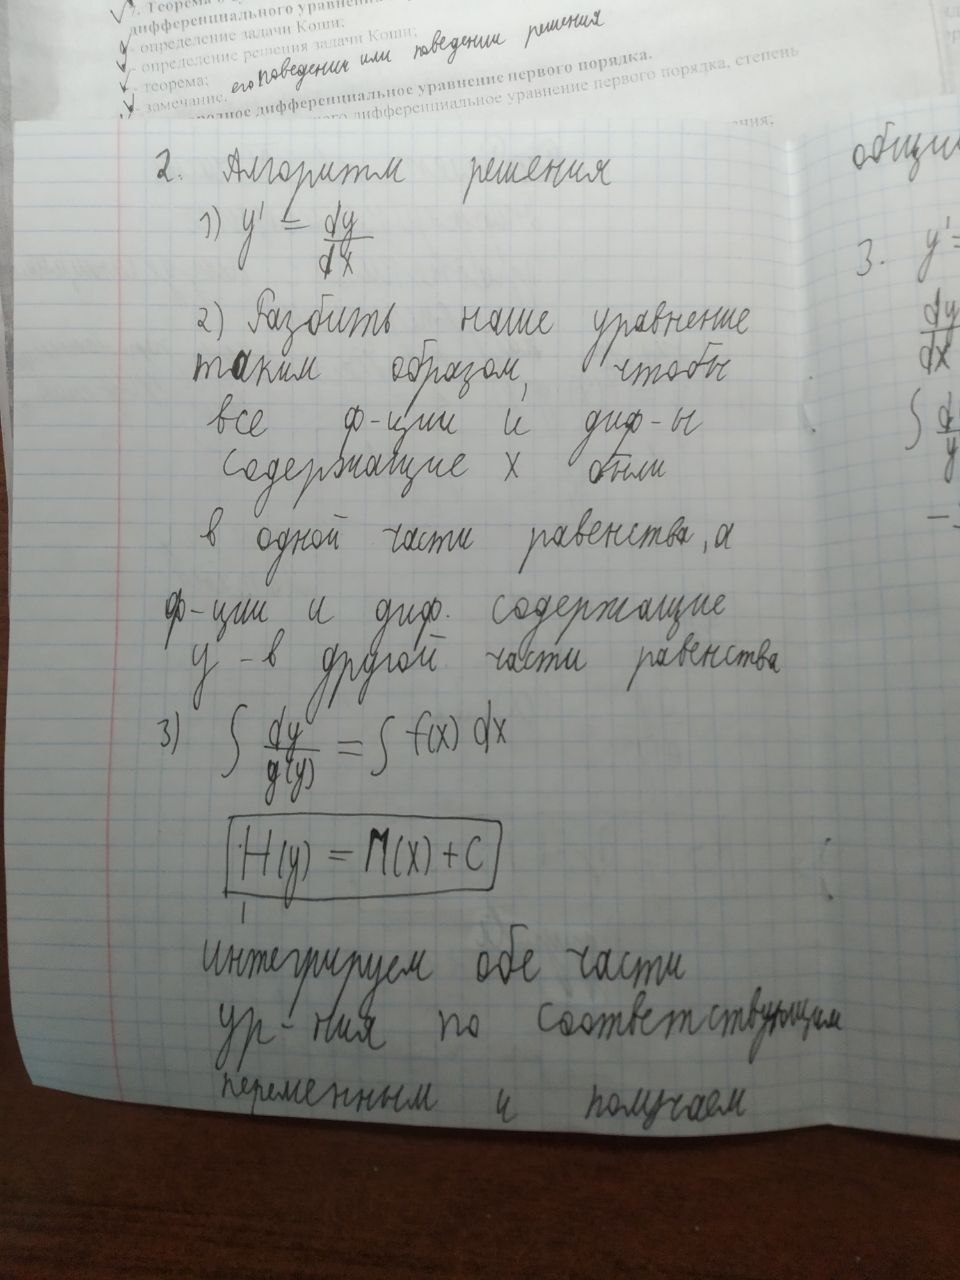 7. Теорема
дифференциального уравнения
- определение задачи Коши;
- определение решения задачи Коши;
- теорема;
- замечание. его поведении или поведении решения
родное дифференциальное уравнение первого порядка.
дифференциальное уравнение первого порядка, степень
2. Алгоритм решения
1) y' = dy/dx
2) Разбить наше уравнение
таким образом, чтобы
все ф-ции и диф-ы
содержащие x были
в одной части равенства, а
ф-ции и диф. содержащие
y - в другой части равенства
3) ∫ dy/g(y) = ∫ f(x) dx
H(y) = M(x) + C
интегрируем обе части
ур-ния по соответствующим
переменным и получаем
общи
3. y' =
dy/dx
∫